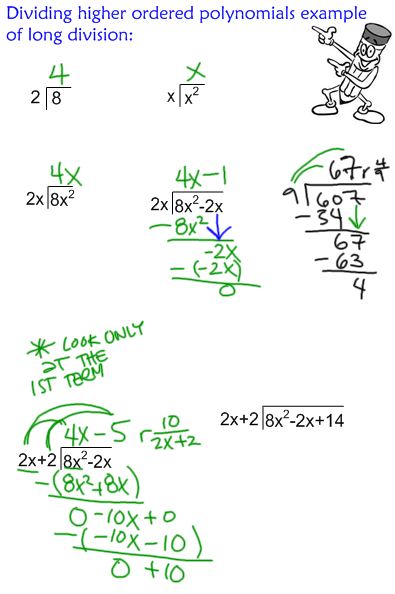 Dividing higher ordered polynomials example
of long division:
4
2 8
x
x x²
4x
2x 8x²
4x-1
2x 8x²-2x
-8x²
-2x
-(-2x)
0
67 r 4/9
9 607
-34
67
-63
4
* LOOK ONLY
AT THE
1ST TERM
4x-5 r 10/2x+2
2x+2 8x²-2x
-(8x²+8x)
0 -10x+0
-(-10x-10)
0 +10
2x+2 8x²-2x+14